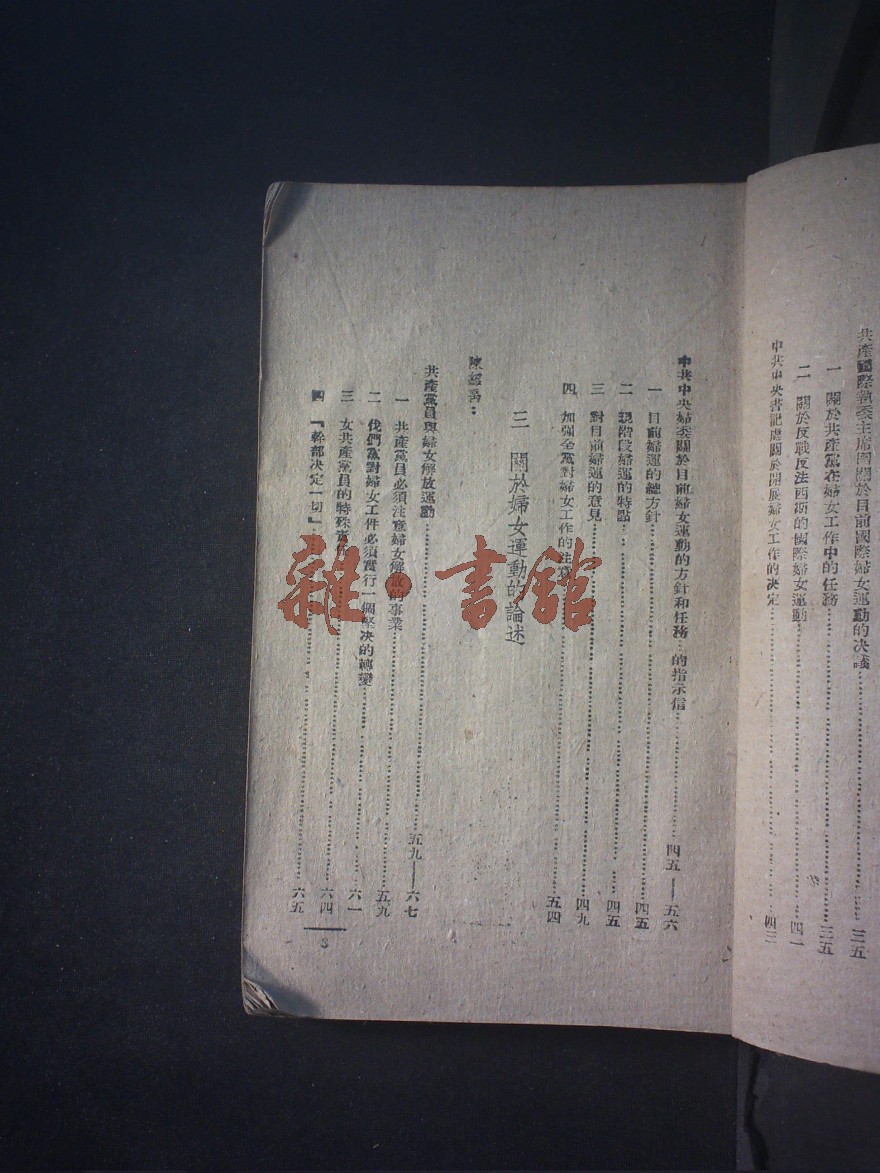 共產國際執委主席團關於目前國際婦女運動的决議……三五
一 關於共產黨在婦女工作中的任務……三五
二 關於反戰反法西斯的國際婦女運動……四一
中共中央書記處關於開展婦女工作的决定……四三
中共中央婦委關於目前婦女運動的方針和任務…的指示信……四五——五六
一 目前婦運的總方針……四五
二 現階段婦運的特點……四五
三 對目前婦運的意見……四九
四 加強全黨對婦女工作的注意……五四
三 關於婦女運動的論述
陳紹禹：
共產黨員與婦女解放運動……五九——六七
一 共產黨員必須注意婦女解放的事業……五九
二 我們黨對婦女工作必須實行一個堅决的轉變……六一
三 女共產黨員的特殊責任……六四
四 『幹部决定一切』……六五
3
雜·書館